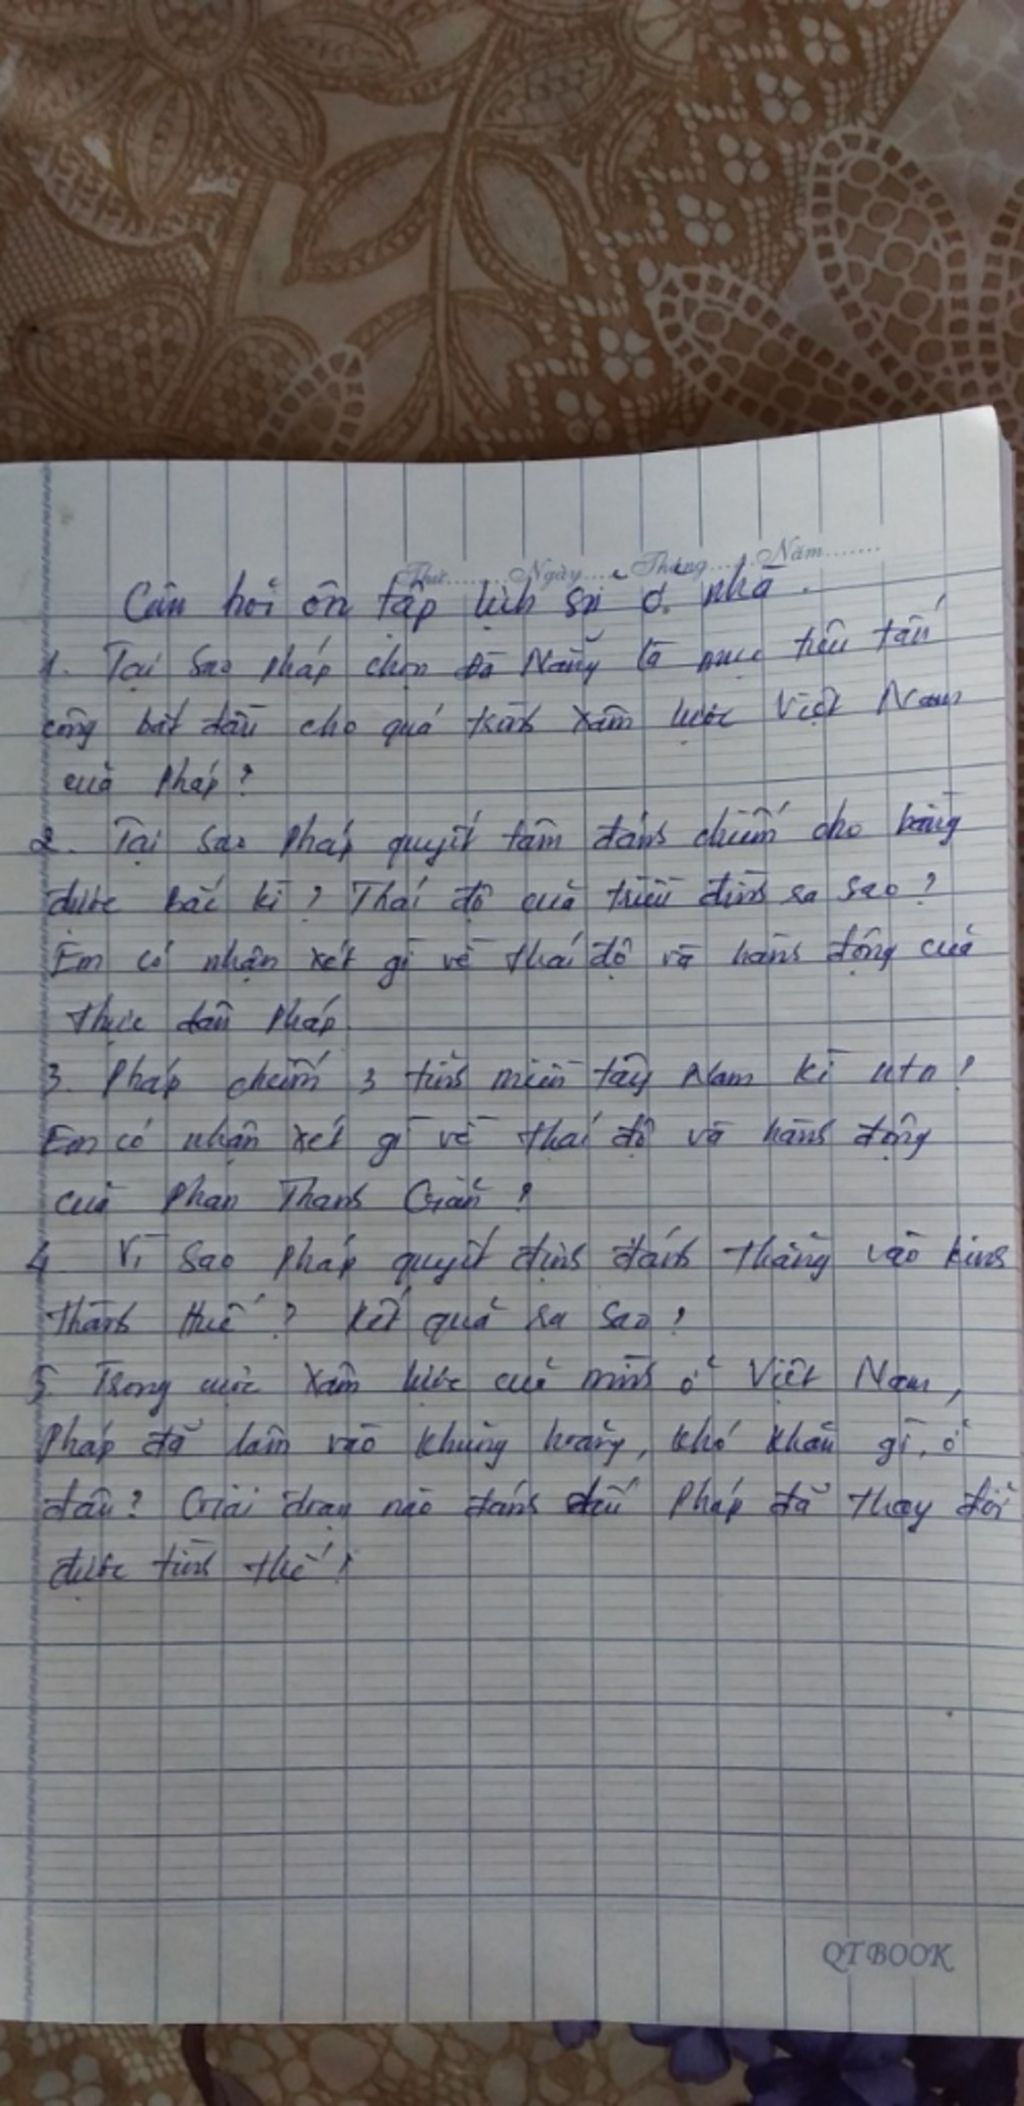 Thứ........Ngày.....Tháng......Năm.......
Câu hỏi ôn tập lịch sử ở nhà.
1. Tại sao Pháp chọn Đà Nẵng là mục tiêu tấn
công bắt đầu cho quá trình xâm lược Việt Nam
của Pháp?
2. Tại sao Pháp quyết tâm đánh chiếm cho bằng
được bắc kì? Thái độ của triều đình ra sao?
Em có nhận xét gì về thái độ và hành động của
thực dân Pháp.
3. Pháp chiếm 3 tỉnh miền tây Nam kì ntn?
Em có nhận xét gì về thái độ và hành động
của Phan Thanh Giản?
4 Vì sao Pháp quyết định đánh thẳng vào kinh
thành Huế? Kết quả ra sao?
5 Trong cuộc xâm lược của mình ở Việt Nam,
Pháp đã lâm vào khủng hoảng, khó khăn gì, ở
đâu? Giai đoạn nào đánh dấu Pháp đã thay đổi
được tình thế?
QTBOOK